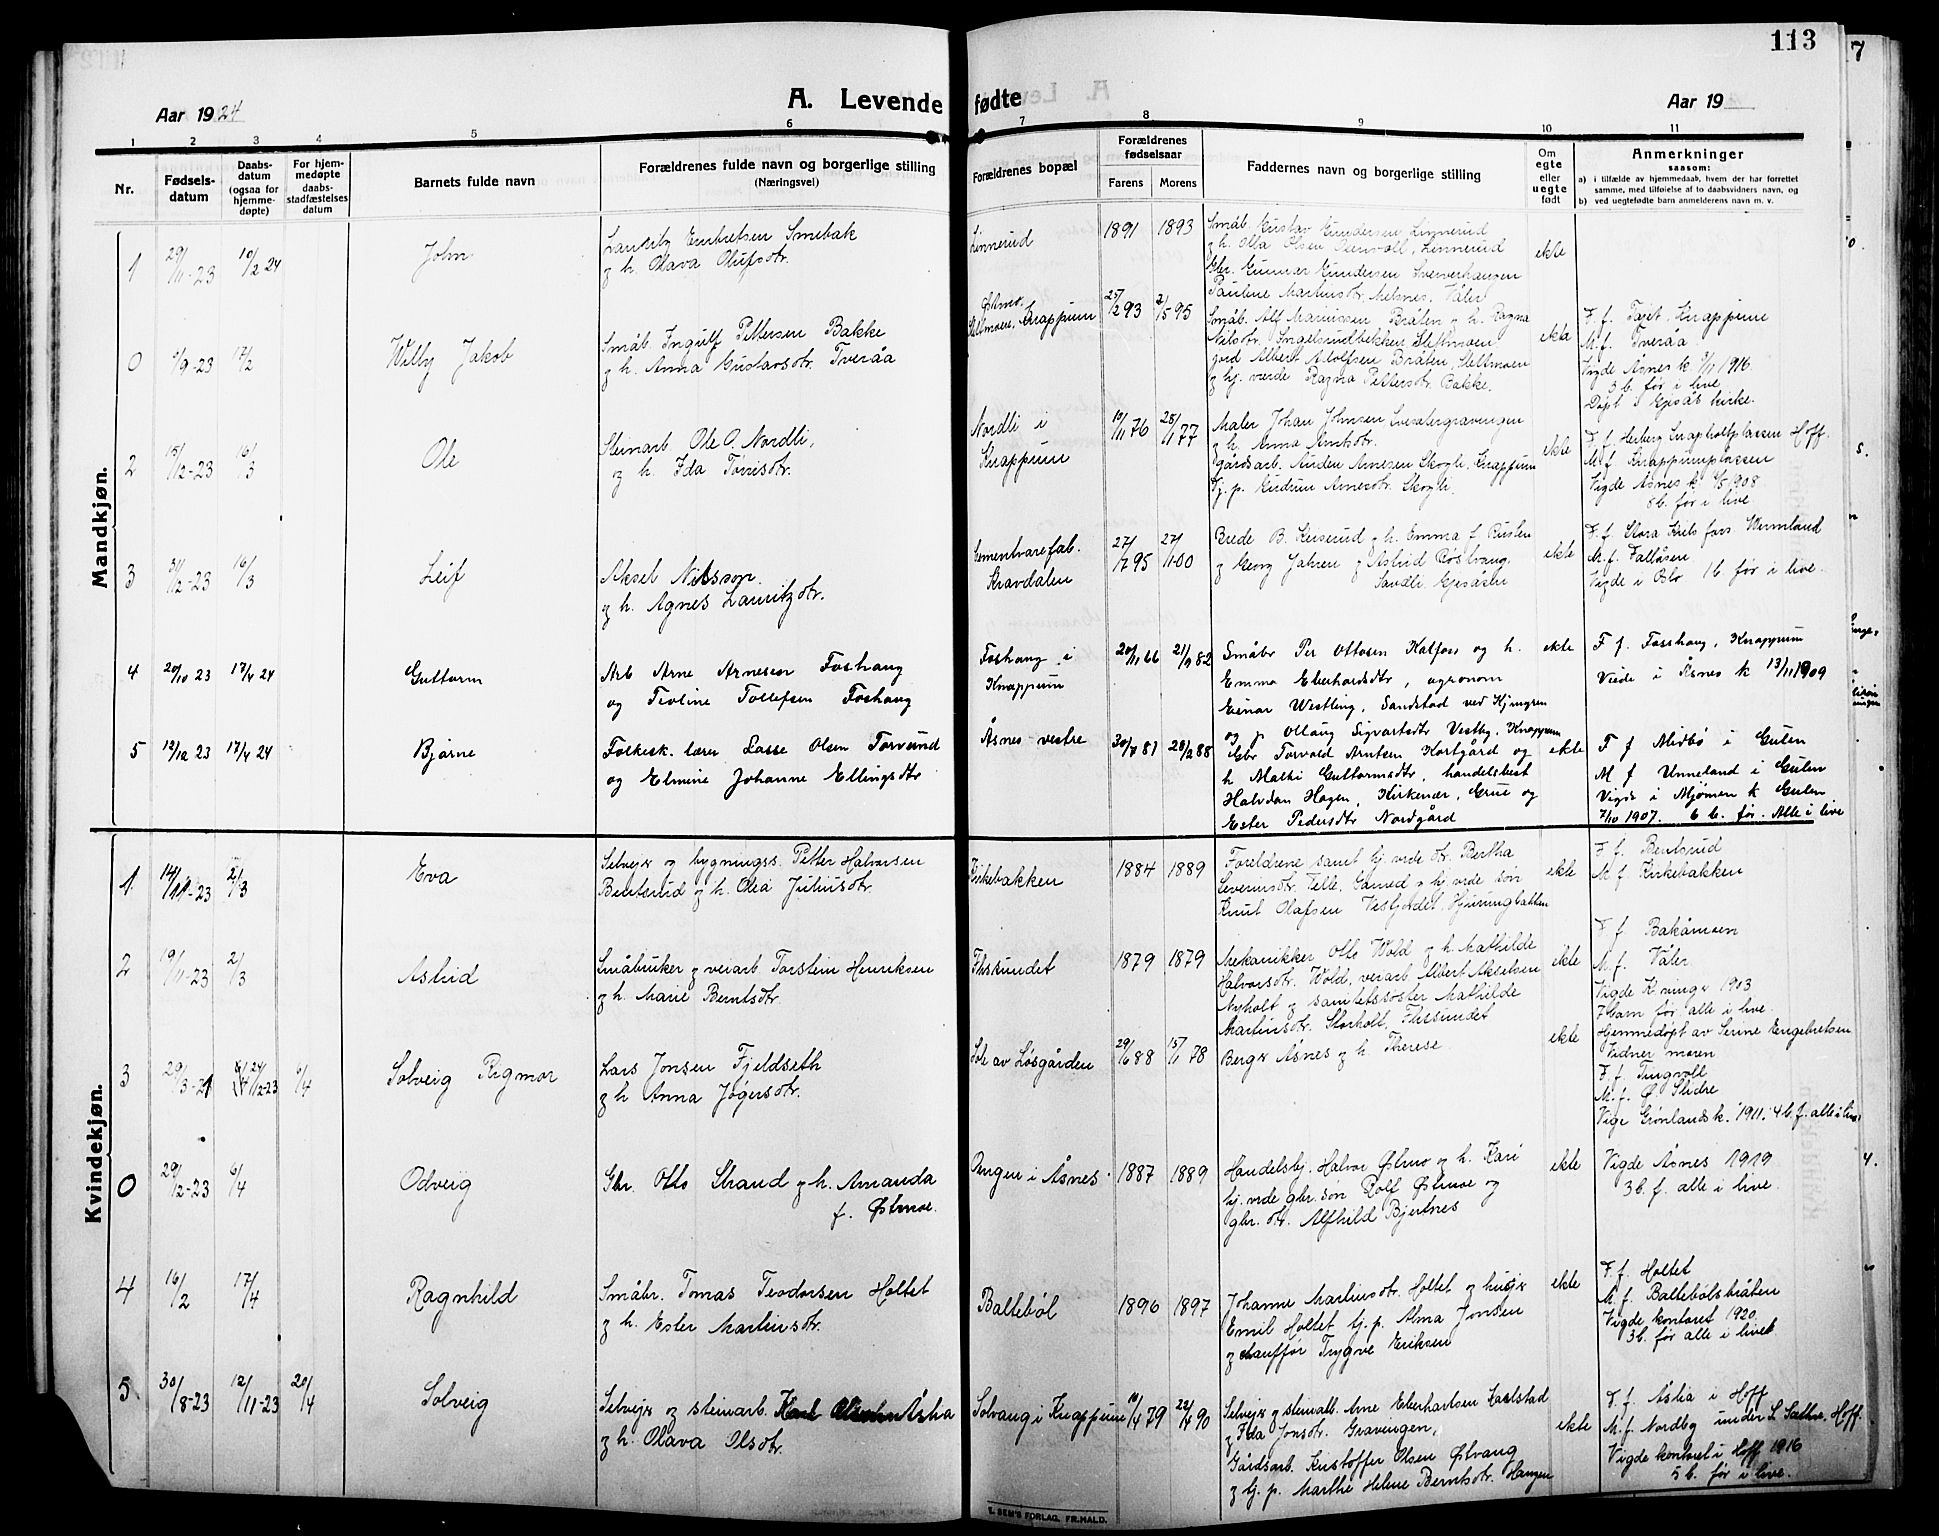 113
7
Aar 1924
A. Levende fødte
Aar 19
1 2 3 4 5 6 7 8 9 10 11
Nr.
Fødsels-datum
Daabs-datum (ogsaa for hjemme-døpte)
For hjem-medøpte daabs-stadfæstelses datum
Barnets fulde navn
Forældrenes fulde navn og borgerlige stilling (Næringsvei)
Forældrenes bopæl
Forældrenes fødselsaar
Farens Morens
Faddernes navn og borgerlige stilling
Om egte eller uegte født
Anmerkninger
saasom:
a) i tilfælde av hjemmedaab, hvem der har forrettet
samme, med tilføielse af to daabsvidners navn, og
b) ved uegtefødte barn anmelderens navn m. v.
Mandkjøn.
1 29/11-23 10/2 24 John
Embretsen Smebak
og h. Olava Olufsdtr.
Linnerud 1891 1893
Småb. Gustav Gundersen Linnerud
og h. Olba Olsen Linnerud
Gbr. Gunnar Gundersen
Pauline Martinsdtr. Melsnes, Våler
ekte
0 5/9-23 17/2 Willy Jakob
Småb. Ingulf Pettersen Bakke
og h. Anna Gustavsdtr. Tveråa
Slettmoen, Knappum 25/2 93 2/5 95
Småb. Alf Mariussen Bråten og h. Ragna
Nilsdtr. Ingelsrudbekken Slettmoen
jord Albert Adolfsen Bråten, Slettmoen
og hj. værde Ragna Pettersdtr. Bakke.
ekte
F. f. Knappum
M. f. Tveråa
Vigde Åsnes k. 1916.
3 b. før i live
Døpt i Gjesås kirke.
2 15/12-23 16/3 Ole
Stenarb. Ole O. Nordli,
og h. Ida Tønisdtr.
Nordli i Knappum 19/11 76 28/11 77
Maler Johan Johnsen
og h. Anna Arntsdtr.
gårdsarb. Auden Arnesen Skogli, Knappum
hj. p. Gudrun Arnesdtr. Skogli.
ekte
Hoff.
M. f. Knappumplassen
Vigde Åsnes k. 1908.
8 b. før i live
3 31/12-23 16/3 Leif
Aksel Nilsson.
og h. Agnes Lauritzdtr.
Sementvarefab. Kravdalen 27/7 95 27/11 00
Brede B. Kirserud og h. Emma f. Rusten
og Georg Jahren og Astrid Røstvang
Sandli, Gjesåsen
ekte
F. f. Stora Kils fors Wermland
M. f. Fallåsen
Vigde i Oslo 1 b. før i live.
4 20/10 23 17/4 24 Guttorm
Arb Arne Arnesen Foshaug
og Tioline Tollefsen Foshaug
Foshaug i Knappum 20/11 66 21/9 82
Småbr Per Ottosen Kalfoss og h.
Emma Eberhardsdtr, agronom
Einar Westling, Sandstad ved Kjengren
og p Ollaug Sigvartsdtr Vestby, Knappum
ekte
F f. Foshaug, Knappum
Viede i Åsnes k 13/11 1909
5 12/12 23 17/4 24 Bjarne
Folkesk. lærer Lasse Olsen Torvund
og Elmine Johanne Ellingsdtr
Åsnes vestre 30/8 81 28/2 88
Gbr Torvald Arntsen Kortgård og
h Malki Guttormsdtr, handelsbest
Halvdan Hagen, Kirkenær, Grue og
Ester Pedersdtr Nordgård
ekte
F f Midbø i Gulen
M f Unneland i Gulen
Vigde i Mjømen k Gulen
7/10 1907. 6 b. før. Alle i live
Kvindekjøn.
1 14/11-23 2/3 Eva
Selveier og bygningss. Petter Halvorsen
Bentsrud og h. Olea Juliusdtr.
Kirkebakken 1884 1889
Foreldrene samt hj. vrde dtr. Bertha
Severinsdtr. Telle, Gamed og hj. vrde søn
Knut Olafsen Vesfjordet, Hjurungbakken
ekte
F. f. Bentsrud
M. f. Kirkebakken
2 19/11-23 2/3 Astrid
Småbruker og veiarb Torstein Henriksen
og h. Marie Berntsdtr.
Flissundet 1879 1879
Mekanikker Otto Wold og h. Mathilde
Halvorsdtr. Wold, veiarb Albert Akselsen
Nyholt og sanitetssøster Mathilde
Martinsdtr. Storholt, Flissundet
ekte
F. f. Bakåmoen
M. f. Våler
Vigde K.vinger 1903
7 barn før, alle i live.
3 29/3-21 6/4 Solveig Rigmor
Lars Jonsen Fjeldseth
og h Anna Jøgersdtr.
Sole av Løsgården 29/6 88 15/1 78
Berger Åsnes og h. Therese.
ekte
Hjemmedøpt av Serine Engebretsen
Vidner moren
F. f. Tingvoll
M. f. Ø. Slidre
Vige Grønlandsk. 1911. 4 b. f. alle i live
0 29/12-23 6/4 Odveig
Gbr. Otto Strand og h. Amanda
f. Østmoe.
Engen i Åsnes 1887 1889
Handelsbj. Halvor Østmo og h. Kari
hj. vrde gbr. søn Rolf Østmoe og
gbr. dtr. Alfhild Bjertnes
ekte
Vigde Åsnes 1919
3 b. f. alle i live.
4 16/2 17/4 Ragnhild
Småbr. Tomas Teodorsen Holtet
og h. Ester Martinsdtr.
Balleböl 1896 1897
Johanne Martinsdtr. Holtet og huseier
Emil Holtet hj. p. Alma Jonsen
og chauffør Trygve Eriksen
ekte
F. f. Holtet
M. f. Ballebølsbråten
Vigde kontoret 1920.
3 b. før alle i livet
5 30/8-23 12/11-23 20/4 Solveig
Selveier og steinarb. Karl Åslia
og h. Olava Olsdtr.
Solvang i Knappum 19/4 79 22/4 90
Selveier og steinarb. Arne Eberhartsen Karlstad
og Ida Jonsdtr. Gravingen,
Gårdsarb. Kristoffer Olsen Østvang
og hj. p. Marthe Helene Berntsdtr. Haugen
ekte
F. f. Åslia i Hoff
M. f. Nordby under S. Sæthre, Hoff.
Vigde kontoret i Hoff 1916
5 b. før i live.
E. SEM'S FORLAG, FR.HALD.